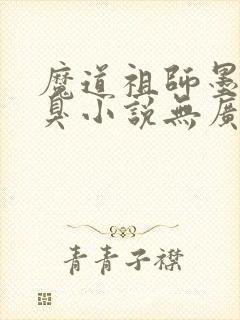 魔道祖師墨
臭小說無廣
青青子襟